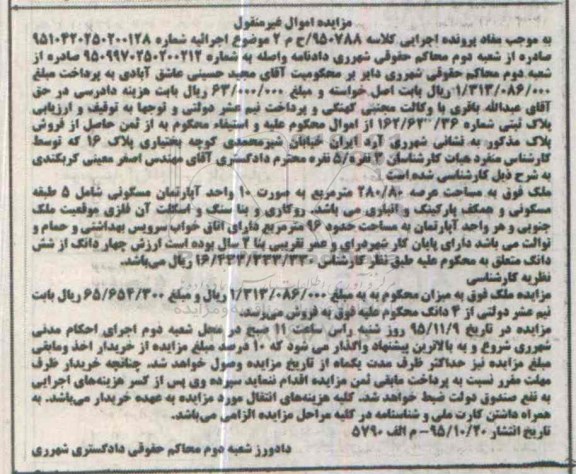 مزایده اموال غیرمنقول
به موجب مفاد پرونده اجرایی کلاسه ۹۵۰۷۸۸/ح م ۲ موضوع اجرائیه شماره ۹۵۱۰۴۲۰۲۵۰۲۰۰۱۲۸
صادره از شعبه دوم محاکم حقوقی شهرری دادنامه واصله به شماره ۹۵۰۹۹۷۰۲۵۰۲۰۰۲۱۲ صادره از
شعبه دوم محاکم حقوقی شهرری دایر بر محکومیت آقای مجید حسینی عاشق آبادی به پرداخت مبلغ
۱/۳۱۳/۰۸۶/۰۰۰ ریال بابت اصل خواسته و مبلغ ۶۳/۰۰۰/۰۰۰ ریال بابت هزینه دادرسی در حق
آقای عبدالله باقری با وکالت مجتبی کهنگی و پرداخت نیم عشر دولتی و توجها به توقیف و ارزیابی
پلاک ثبتی شماره ۱۶۲/۶۳ /۳۶ از اموال محکوم علیه و استیفاء محکوم به از ثمن حاصل از فروش
پلاک مذکور به نشانی شهرری آرد ایران خیابان شیرمحمدی کوچه بختیاری پلاک ۱۶ که توسط
کارشناس منفرد هیات کارشناسان ۳ نفره/۵ نفره محترم دادگستری آقای مهندس اصغر معینی کربکندی
به شرح ذیل کارشناسی شده است:
ملک فوق به مساحت عرصه ۲۸۰/۸۰ مترمربع به صورت ۱۰ واحد آپارتمان مسکونی شامل ۵ طبقه
مسکونی و همکف پارکینگ و انباری می باشد. روکاری و بنا سنگ و اسکلت آن فلزی موقعیت ملک
جنوبی و هر واحد آپارتمان به مساحت حدود ۹۶ مترمربع دارای اتاق خواب سرویس بهداشتی و حمام و
توالت می باشد دارای پایان کار شهرداری و عمر تقریبی بنا ۴ سال بوده است ارزش چهار دانگ از شش
دانگ متعلق به محکوم علیه طبق نظر کارشناس ۱۶/۳۳۳/۳۳۳/۳۳۰ ریال می‌باشد.
نظریه کارشناسی
مزایده ملک فوق به میزان محکوم به به مبلغ ۱/۳۱۳/۰۸۶/۰۰۰ ریال و مبلغ ۶۵/۶۵۴/۳۰۰ ریال بابت
نیم عشر دولتی از ۴ دانگ محکوم علیه فوق به فروش می‌رسد.
مزایده در تاریخ ۹۵/۱۱/۹ روز شنبه راس ساعت ۱۱ صبح در محل شعبه دوم اجرای احکام مدنی
شهرری شروع و به بالاترین پیشنهاد واگذار می شود که ۱۰ درصد مبلغ مزایده از خریدار اخذ ومابقی
مبلغ مزایده نیز حداکثر ظرف مدت یکماه از تاریخ مزایده وصول خواهد شد. چنانچه خریدار ظرف
مهلت مقرر نسبت به پرداخت مابقی ثمن مزایده اقدام ننماید سپرده وی پس از کسر هزینه‌های اجرایی
به نفع صندوق دولت ضبط خواهد شد. کلیه هزینه‌های انتقال مورد مزایده به عهده خریدار می‌باشد. به
همراه داشتن کارت ملی و شناسنامه در کلیه مراحل مزایده الزامی می‌باشد.
تاریخ انتشار ۹۵/۱۰/۲۰– م الف ۵۷۹۰
دادورز شعبه دوم محاکم حقوقی دادگستری شهرری